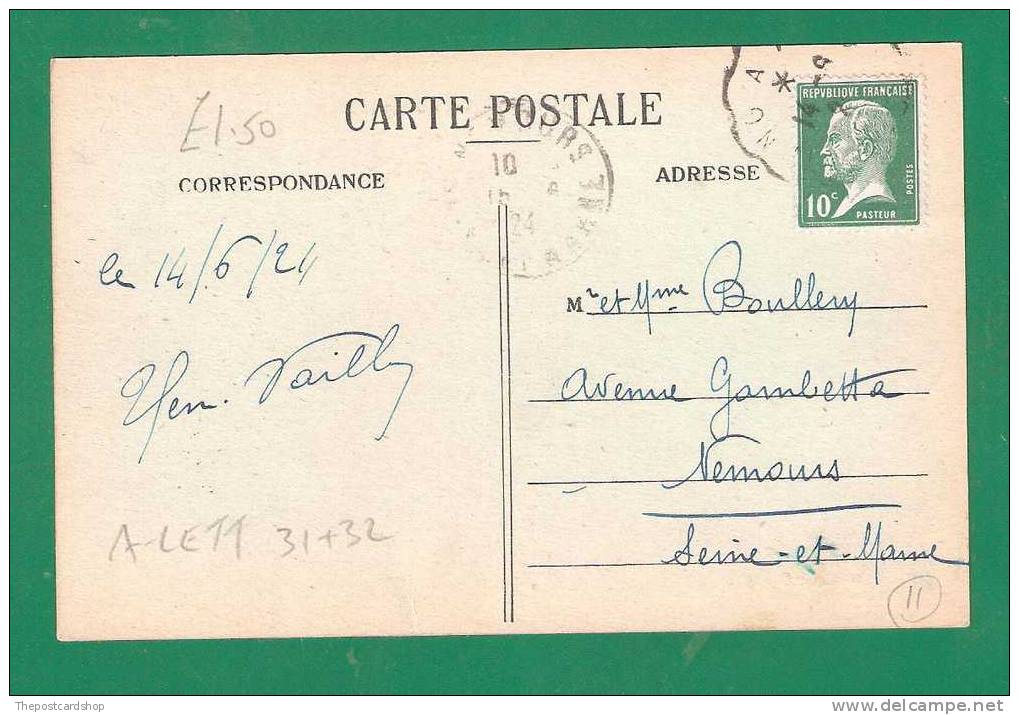 £1.50
CARTE POSTALE
CORRESPONDANCE
ADRESSE
REPVBLIQVE FRANÇAISE
POSTES
10c
PASTEUR
10
15
24
MARNE
le 14/6/24
Mr et Mme Boullery
Avenue Gambetta
Nemours
Seine-et-Marne
A-LETT 31+32
11
Thepostcardshop
delcampe.net